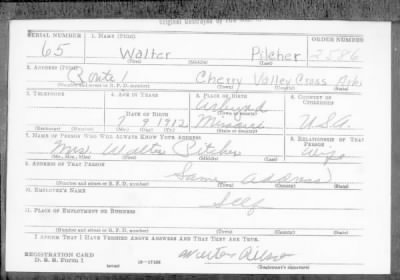 SERIAL NUMBER 1. NAME (Print) ORDER NUMBER
65 Walter Pilcher 2586
(First) (Middle) (Last)
2. ADDRESS (Print)
Route 1 Cherry Valley Cross Ark
(Number and street or R. F. D. number) (Town) (County) (State)
3. TELEPHONE 4. AGE IN YEARS 5. PLACE OF BIRTH 6. COUNTRY OF CITIZENSHIP
DATE OF BIRTH (Town or county)
7 9 1912 U.S.A.
(Exchange) (Number) (Mo.) (Day) (Yr.) (State or country)
7. NAME OF PERSON WHO WILL ALWAYS KNOW YOUR ADDRESS 8. RELATIONSHIP OF THAT PERSON
Mrs. Walter Pilcher Wife
(Mr., Mrs., Miss) (First) (Middle) (Last)
9. ADDRESS OF THAT PERSON
Same address
(Number and street or R. F. D. number) (Town) (County) (State)
10. EMPLOYER'S NAME
Self
11. PLACE OF EMPLOYMENT OR BUSINESS
(Number and street or R. F. D. number) (Town) (County) (State)
I AFFIRM THAT I HAVE VERIFIED ABOVE ANSWERS AND THAT THEY ARE TRUE.
REGISTRATION CARD
D. S. S. Form 1
(Registrant's signature)